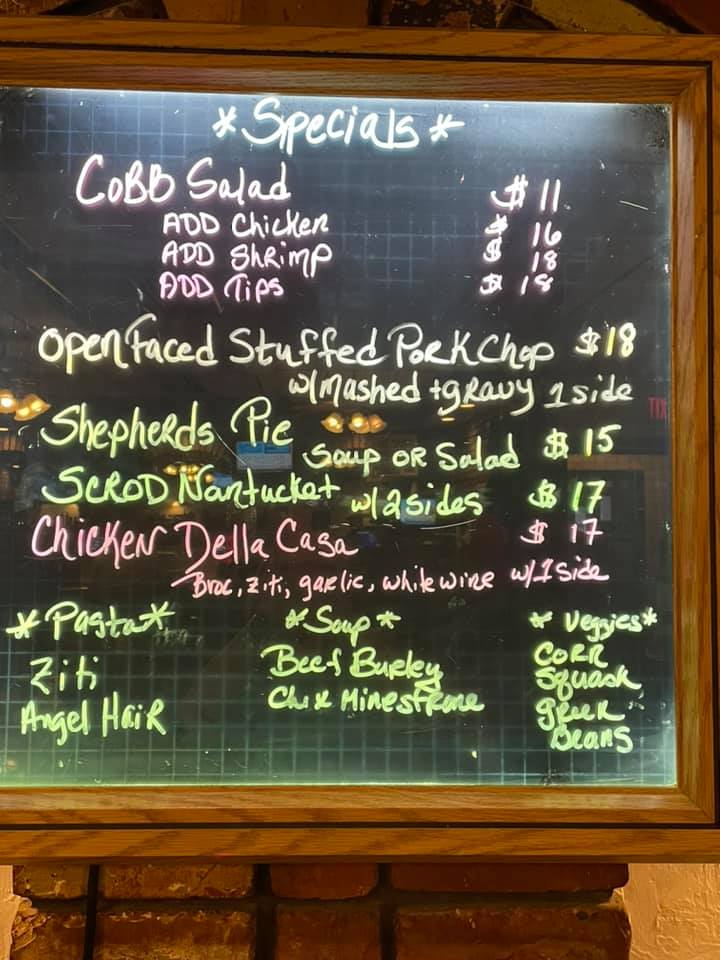 *Specials*
COBB Salad $11
ADD Chicken $ 16
ADD Shrimp $ 18
ADD Tips $ 18
Open Faced Stuffed Pork Chop $18
w/mashed + gravy 1 side
Shepherds Pie Soup OR Salad $ 15
SCROD Nantucket w/2 sides $ 17
Chicken Della Casa $ 17
Broc, ziti, garlic, white wine w/1 side
*Pasta* *Soup* *Veggies*
Ziti Beef Burley Corn
Angel Hair Chix Minestrone Squash
green
Beans